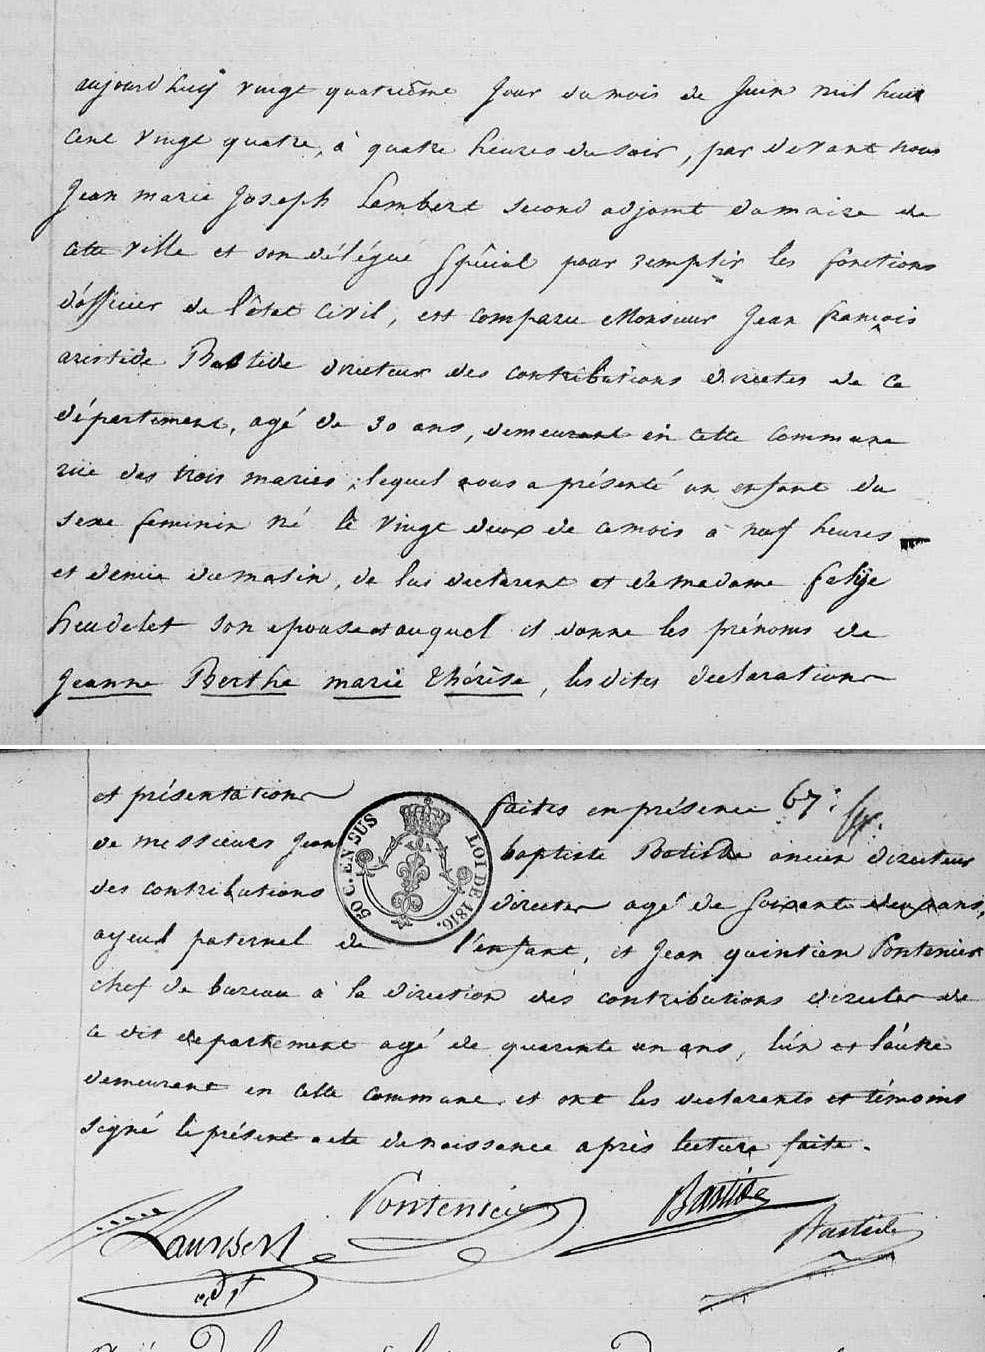 aujourd huy vingt quatrième jour du mois de Juin mil huit
cent vingt quatre, à quatre heures du soir, par devant nous
Jean marie Joseph Lambert second adjoint du maire de
cette ville et son délégué spécial pour remplir les fonctions
d'officier de l'état civil, est comparu Monsieur Jean françois
aristide Bastide directeur des contributions directes de ce
département, agé de 30 ans, demeurant en cette commune
rüe des trois maries, lequel nous a présenté un enfant du
sexe feminin né le vingt deux de ce mois à neuf heures
et demie du matin, de lui declarant et de madame felije
heudelet son epouse et auquel il donne les prénoms de
Jeanne Berthe marie thérèse, les dites declaration
et présentation faites en présence 67:
de messieurs Jean baptiste Batisde ancien directeur
des contributions directes agé de soixante deux ans,
ayeul paternel de l'enfant, et Jean quintien Pontenier
chef de bureau à la direction des contributions directes de
ce dit departement agé de quarante un ans, l'un et l'autre
demeurant en cette commune et ont les declarants et témoins
signé le présent acte de naissance après lecture faite.
50 C. EN SUS
LOI DE 1816.
Lambert Pontenier Bastide Bastide
adjt